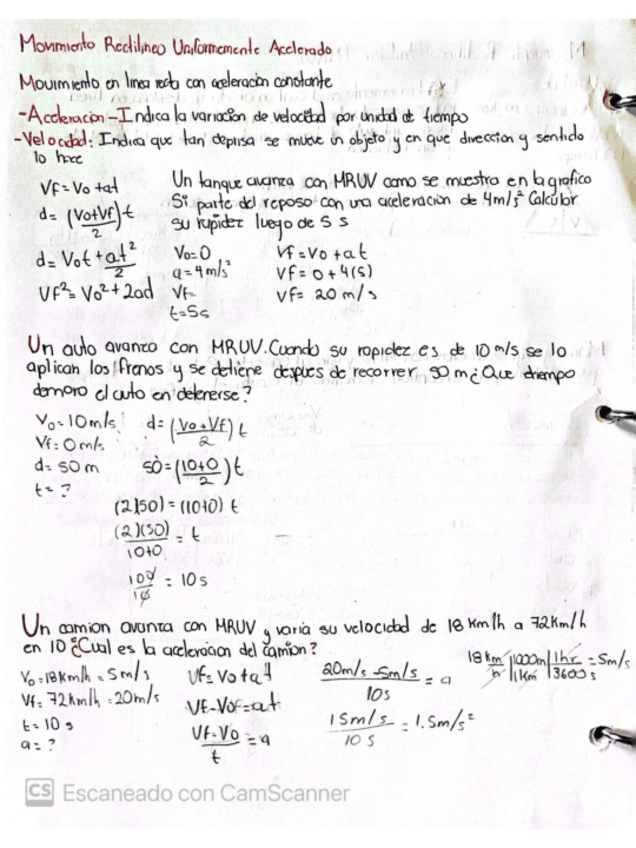 Movimiento Rectilineo Uniformemente Acelerado
Movimiento en linea recta con aceleración constante
-Aceleracion-Indica la variación de velocidad por unidad de tiempo
-Velocidad: Indica que tan deprisa se mueve un objeto y en que direccion y sentido
lo hace
Vf=Vo+at
d=(Vo+Vf/2)t
d=Vot+at²/2
Vf²=Vo²+2ad
Un tanque avanza con MRUV como se muestra en la grafico
Si parte del reposo con una aceleración de 4m/s² Calcular
su rapidez luego de 5 s
Vo=0
a=4m/s²
Vf=
t=5s
Vf=Vo+at
Vf=0+4(5)
Vf=20m/s
Un auto avanza con MRUV.Cuando su rapidez es de 10 m/s, se lo
aplican los frenos y se detiene despues de recorrer, 50 m¿Que tiempo
demoro el auto en detenerse?
Vo=10m/s
Vf=0m/s
d=50m
t=?
d=(Vo+Vf/2)t
50=(10+0/2)t
(2)(50)=(10+0) t
(2)(50)/10+0=t
100/10=10s
Un camion avanza con MRUV y varia su velocidad de 18 Km/h a 72Km/h
en 10 ¿Cual es la aceleracion del camion?
Vo=18Km/h=5m/s
Vf=72Km/h=20m/s
t=10s
a=?
Vf=Vo+at
Vf-Vo=at
Vf-Vo/t=a
20m/s-5m/s/10s=a
15m/s/10s=1.5m/s²
18km/h|1000m/1Km|1hr/3600s=5m/s
CS Escaneado con CamScanner